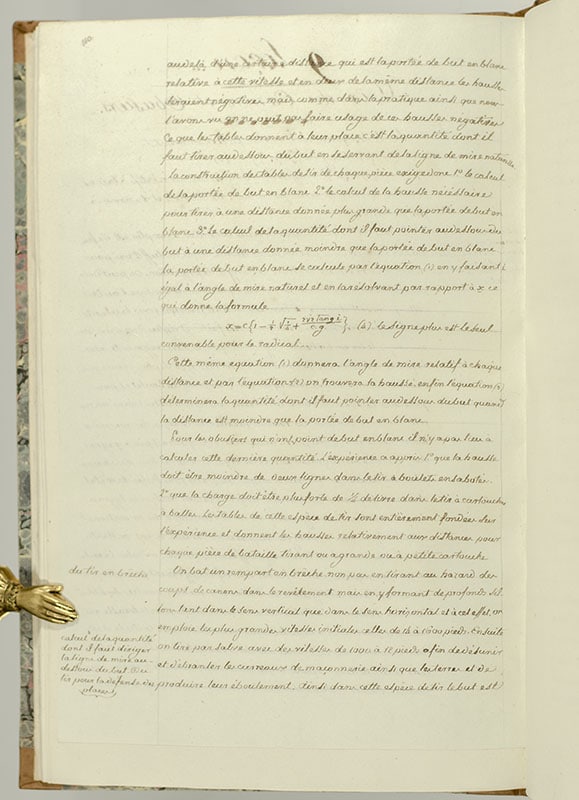 au delà d'une certaine distance qui est la portée de but en blanc
relative à cette vitesse et en deça de la même distance les hausses
seraient négatives mais comme dans la pratique ainsi que nous
l'avons vu on ne peut pas faire usage de ces hausses negatives
Ce que les tables donnent à leur place c'est la quantité dont il
faut tirer au dessous du but en se servant de la ligne de mire naturelle
La construction des tables de tir de chaque pièce exige donc 1º le calcul
de la portée de but en blanc 2º le calcul de la hausse nécéssaire
pour tirer à une distance donnée plus grande que la portée de but en
blanc 3º Le calcul de la quantité dont il faut pointer au dessous du
but à une distance donnée moindre que la portée de but en blanc
la portée de but en blanc se calcule par l'équation (1) en y faisant i
égal à l'angle de mire naturel et en la résolvant par rapport à x ce
qui donne la formule
(4) le signe plus est le seul
convenable pour le radical
Cette même equation (1) donnera l'angle de mire relatif à chaque
distance et par l'equation (2) on trouvera la hausse enfin l'equation (3)
determinera la quantité dont il faut pointer au dessous du but quand
la distance est moindre que la portée de but en blanc
Pour les obusiers qui n'ont point de but en blanc il n'y a pas lieu à
calculer cette dernière quantité L'expérience a appris 1º que la hausse
doit être moindre de deux lignes dans le tir à boulets ensabotés
2º que la charge doit être plus forte de 1/2 de livre dans le tir à cartouches
à balles. Les tables de cette espèce de tir sont entièrement fondées sur
l'expérience et donnent les hausses relativement aux distances pour
chaque pièce de bataille tirant ou à grande ou à petite cartouche
du tir en brèche
On bat un rempart en brèche non pas en tirant au hazard des
coups de canons dans le revêtement mais en y formant de profonds sil-
lons tant dans le sens vertical que dans le sens horizontal et à cet effet on
emploie les plus grandes vitesses initiales celles de à 1600 pieds Ensuite
on tire par salve avec des vitesses de 1000 à pieds afin de désunir
et d'ébranler les carreaux de maçonnerie ainsi que les terres et de
produire leur éboulement. Ainsi dans cette espèce de tir le but est
calcul de la quantité
dont il faut diriger
la ligne de mire au-
dessous du but. Du
tir pour la défense des
places